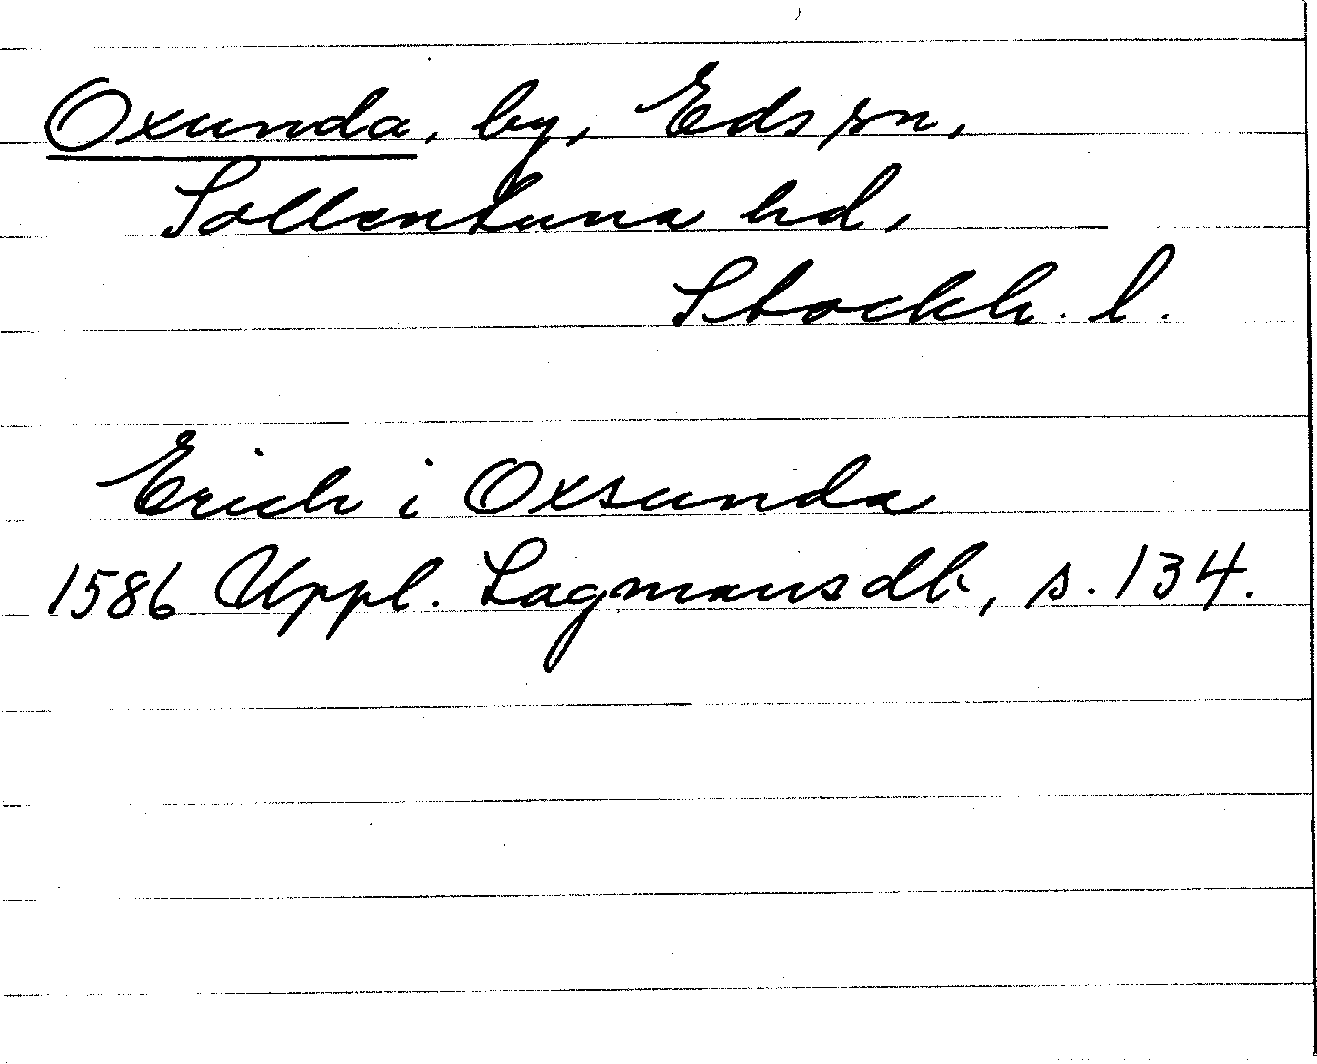 Oxunda, by, Eds sn,
Sollentuna hd,
Stockh. l.
Erich i Oxsunda
1586 Uppl. Lagmansdb, s. 134.